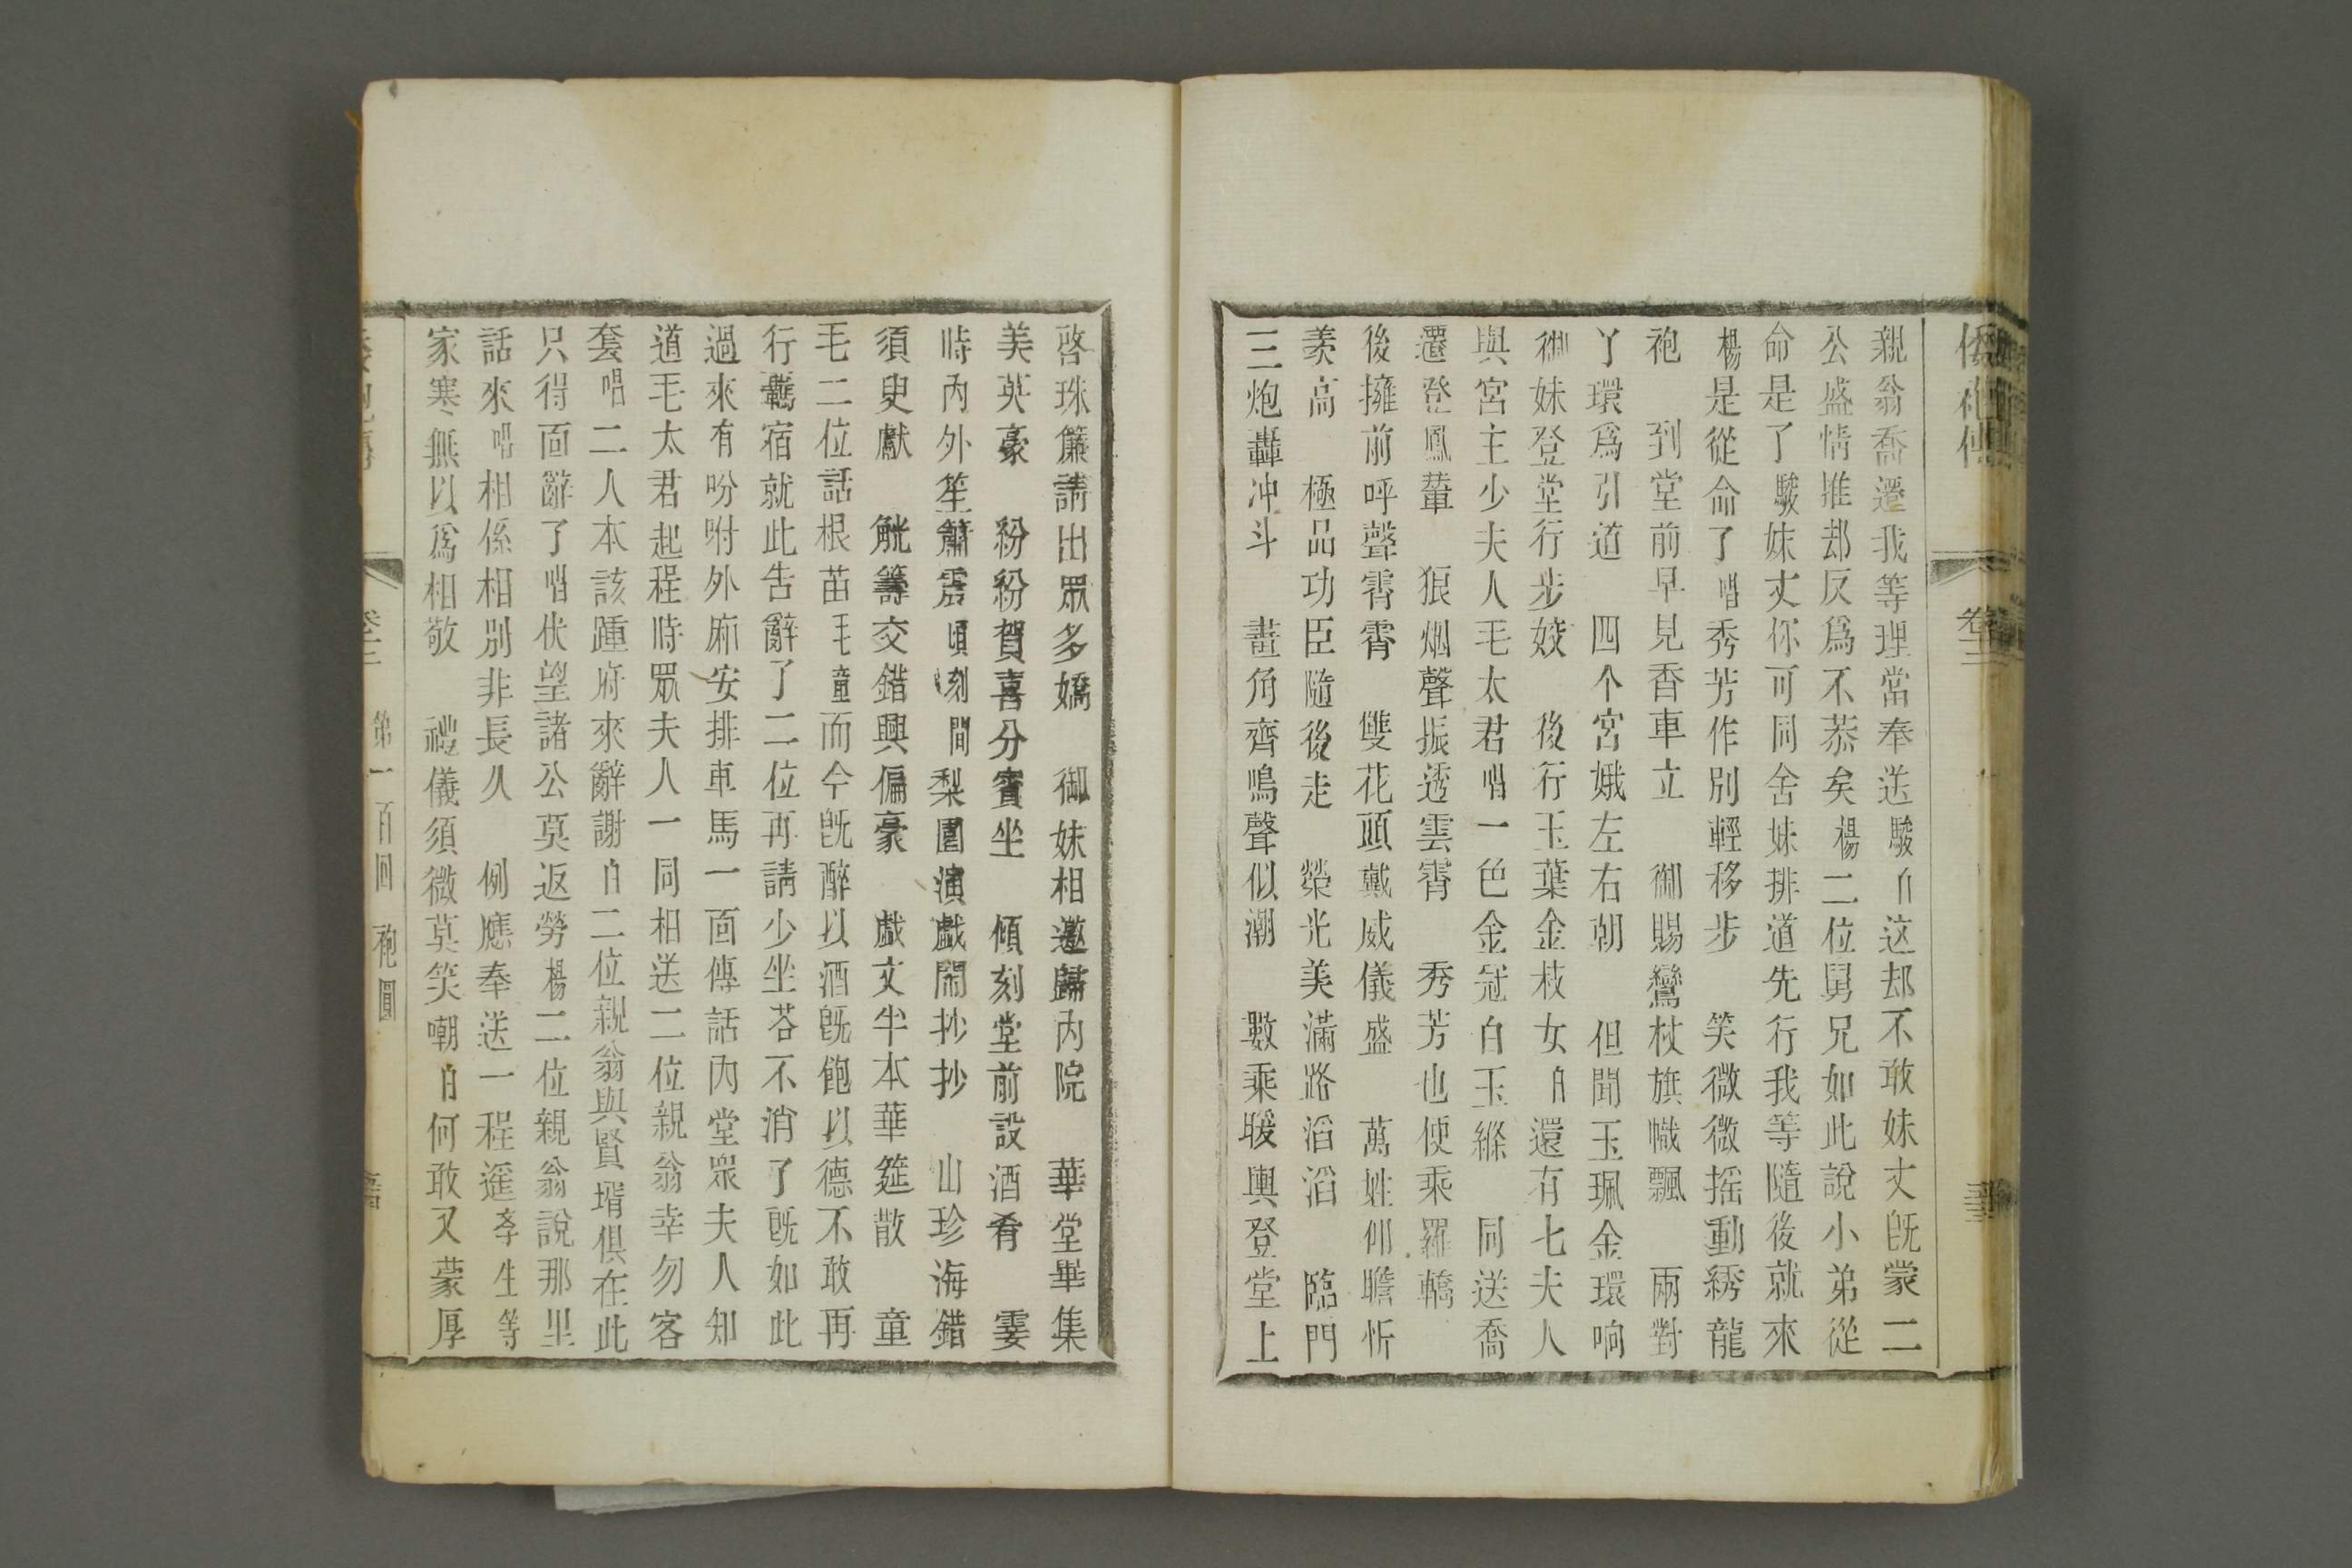 親翁喬遷我等理當奉送駿白这却不敢妹丈既蒙二
公盛情雅却反爲不恭矣楊二位舅兄如此說小弟從
命是了駿妹丈你可同舍妹排道先行我等隨後就來
楊是從命了唱秀芳作別輕移步　笑微微摇動綉龍
袍　到堂前早見香車立　御賜鸞杖旗幟飄　兩對
丫環爲引道　四个宮娥左右朝　但聞玉珮金環响
御妹登堂行步姣　後行玉葉金枝女白還有七夫人
與宮主少夫人毛太君唱一色金冠白玉縧　同送喬
遷登鳳輦　狠烟聲振透雲霄　秀芳也便乘羅轎
後擁前呼聲霄霄　雙花頭戴威儀盛　萬姓仰瞻忻
羨高　極品功臣隨後走　榮光美滿路滔滔　臨門
三炮轟冲斗　畫角齊鳴聲似潮　數乘暖輿登堂上
卷三
啓珠簾請出眾多嬌　御妹相邀歸內院　華堂畢集
美英豪　紛紛賀喜分賓坐　傾刻堂前設酒肴　霎
時內外笙簫震頃刻間梨園演戲閙抄抄　山珍海錯
須臾獻　觥籌交錯興偏豪　戲文半本華筵散　童
毛二位話根苗毛童而今既醉以酒既飽以德不敢再
行羈宿就此告辭了二位再請少坐荅不消了既如此
過來有吩咐外廂安排車馬一面傳話內堂眾夫人知
道毛太君起程時眾夫人一同相送二位親翁幸勿客
套唱二人本該踵府來辭謝白二位親翁與賢壻俱在此
只得面辭了唱伏望諸公莫返勞楊二位親翁說那里
話來唱相係相別非長久　例應奉送一程遥李生等
家寒無以爲相敬　禮儀須微莫笑嘲白何敢又蒙厚
卷三　第一百回　袍圓